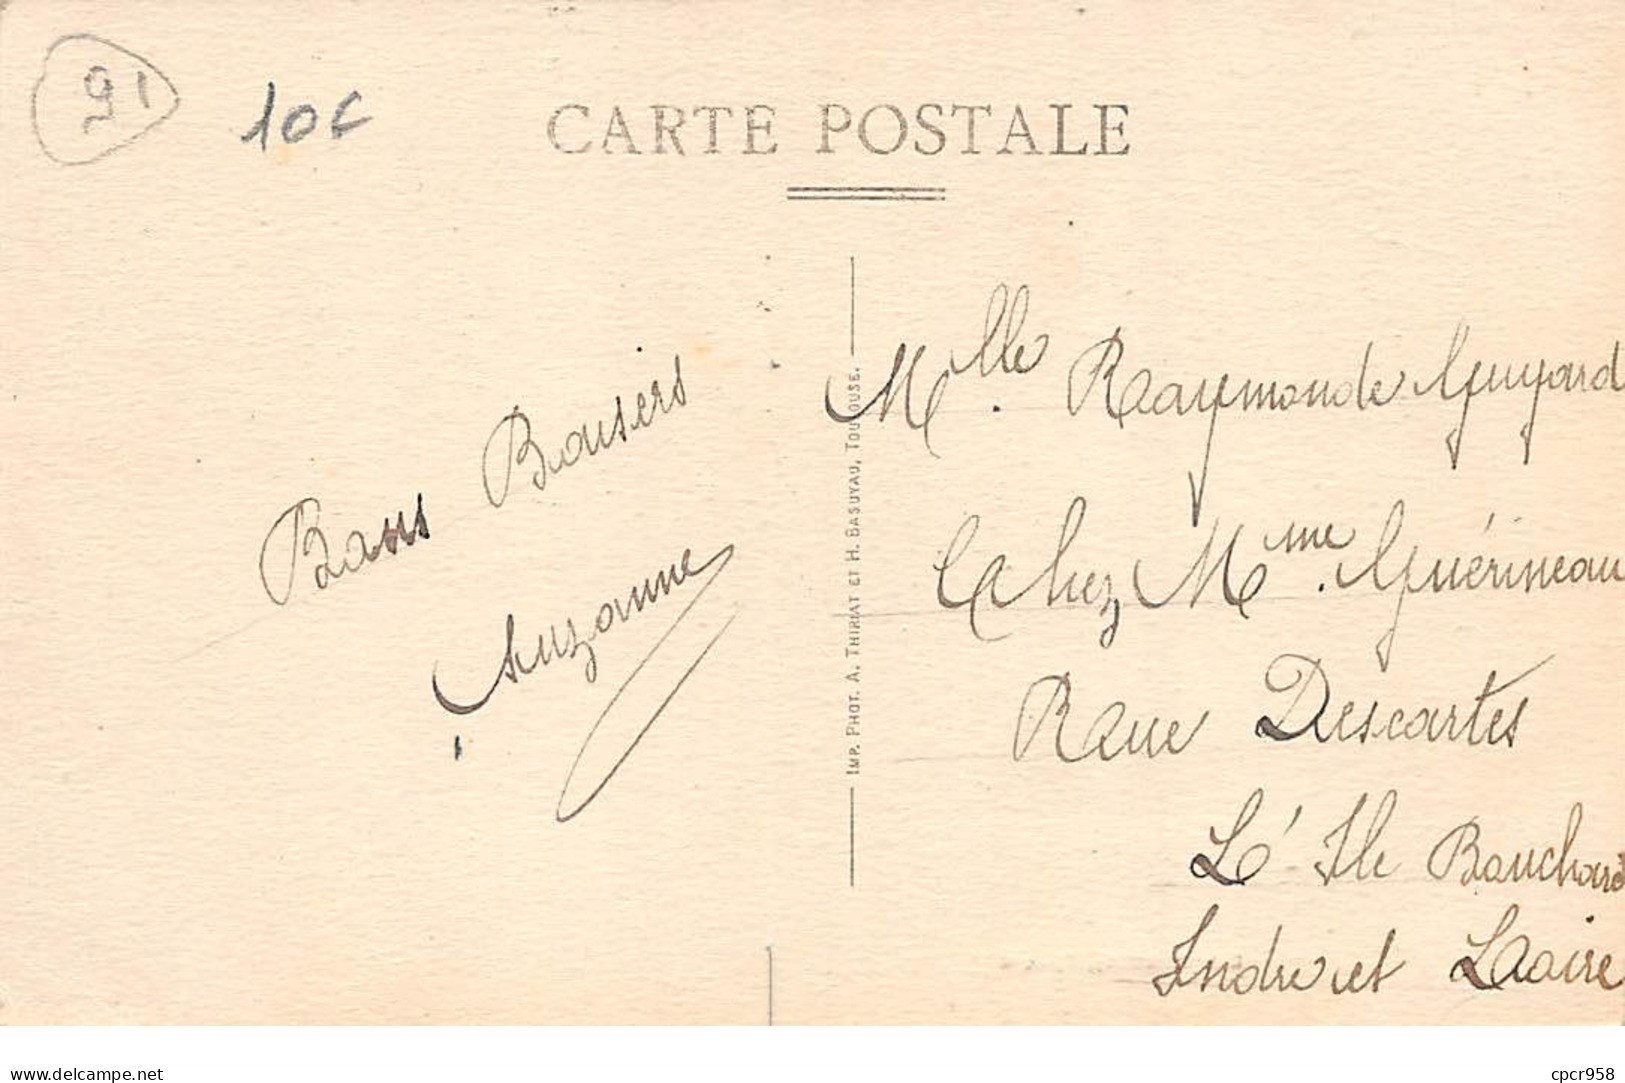 91
10€
CARTE POSTALE
Bons Baisers
Suzanne
IMP. PHOT. A. THIRIAT ET H. BASUYAU, TOULOUSE.
Mlle. Raymonde Guyard
Chez Mme. Guérineau
Rue Descartes
L' Ile Bouchard
Indre et Loire
delcampe.net
cpcr958